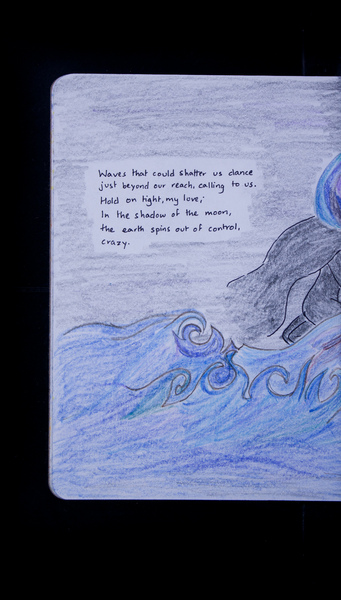 Waves that could shatter us dance
just beyond our reach, calling to us.
Hold on tight, my love,
In the shadow of the moon,
the earth spins out of control,
crazy.